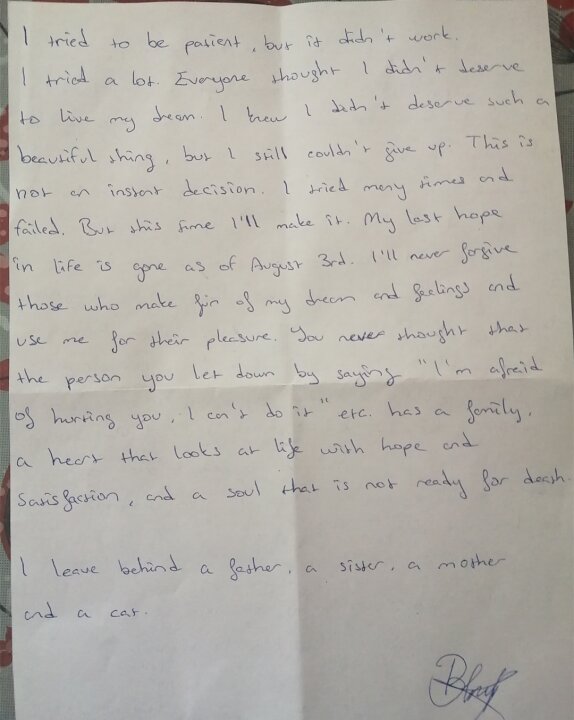 I tried to be patient, but it didn't work.
I tried a lot. Everyone thought I didn't deserve
to live my dream. I knew I didn't deserve such a
beautiful thing, but I still couldn't give up. This is
not an instant decision. I tried many times and
failed. But this time I'll make it. My last hope
in life is gone as of August 3rd. I'll never forgive
those who make fun of my dream and feelings and
use me for their pleasure. You never thought that
the person you let down by saying "I'm afraid
of hurting you, I can't do it" etc. has a family,
a heart that looks at life with hope and
satisfaction, and a soul that is not ready for death.

I leave behind a father, a sister, a mother
and a cat.